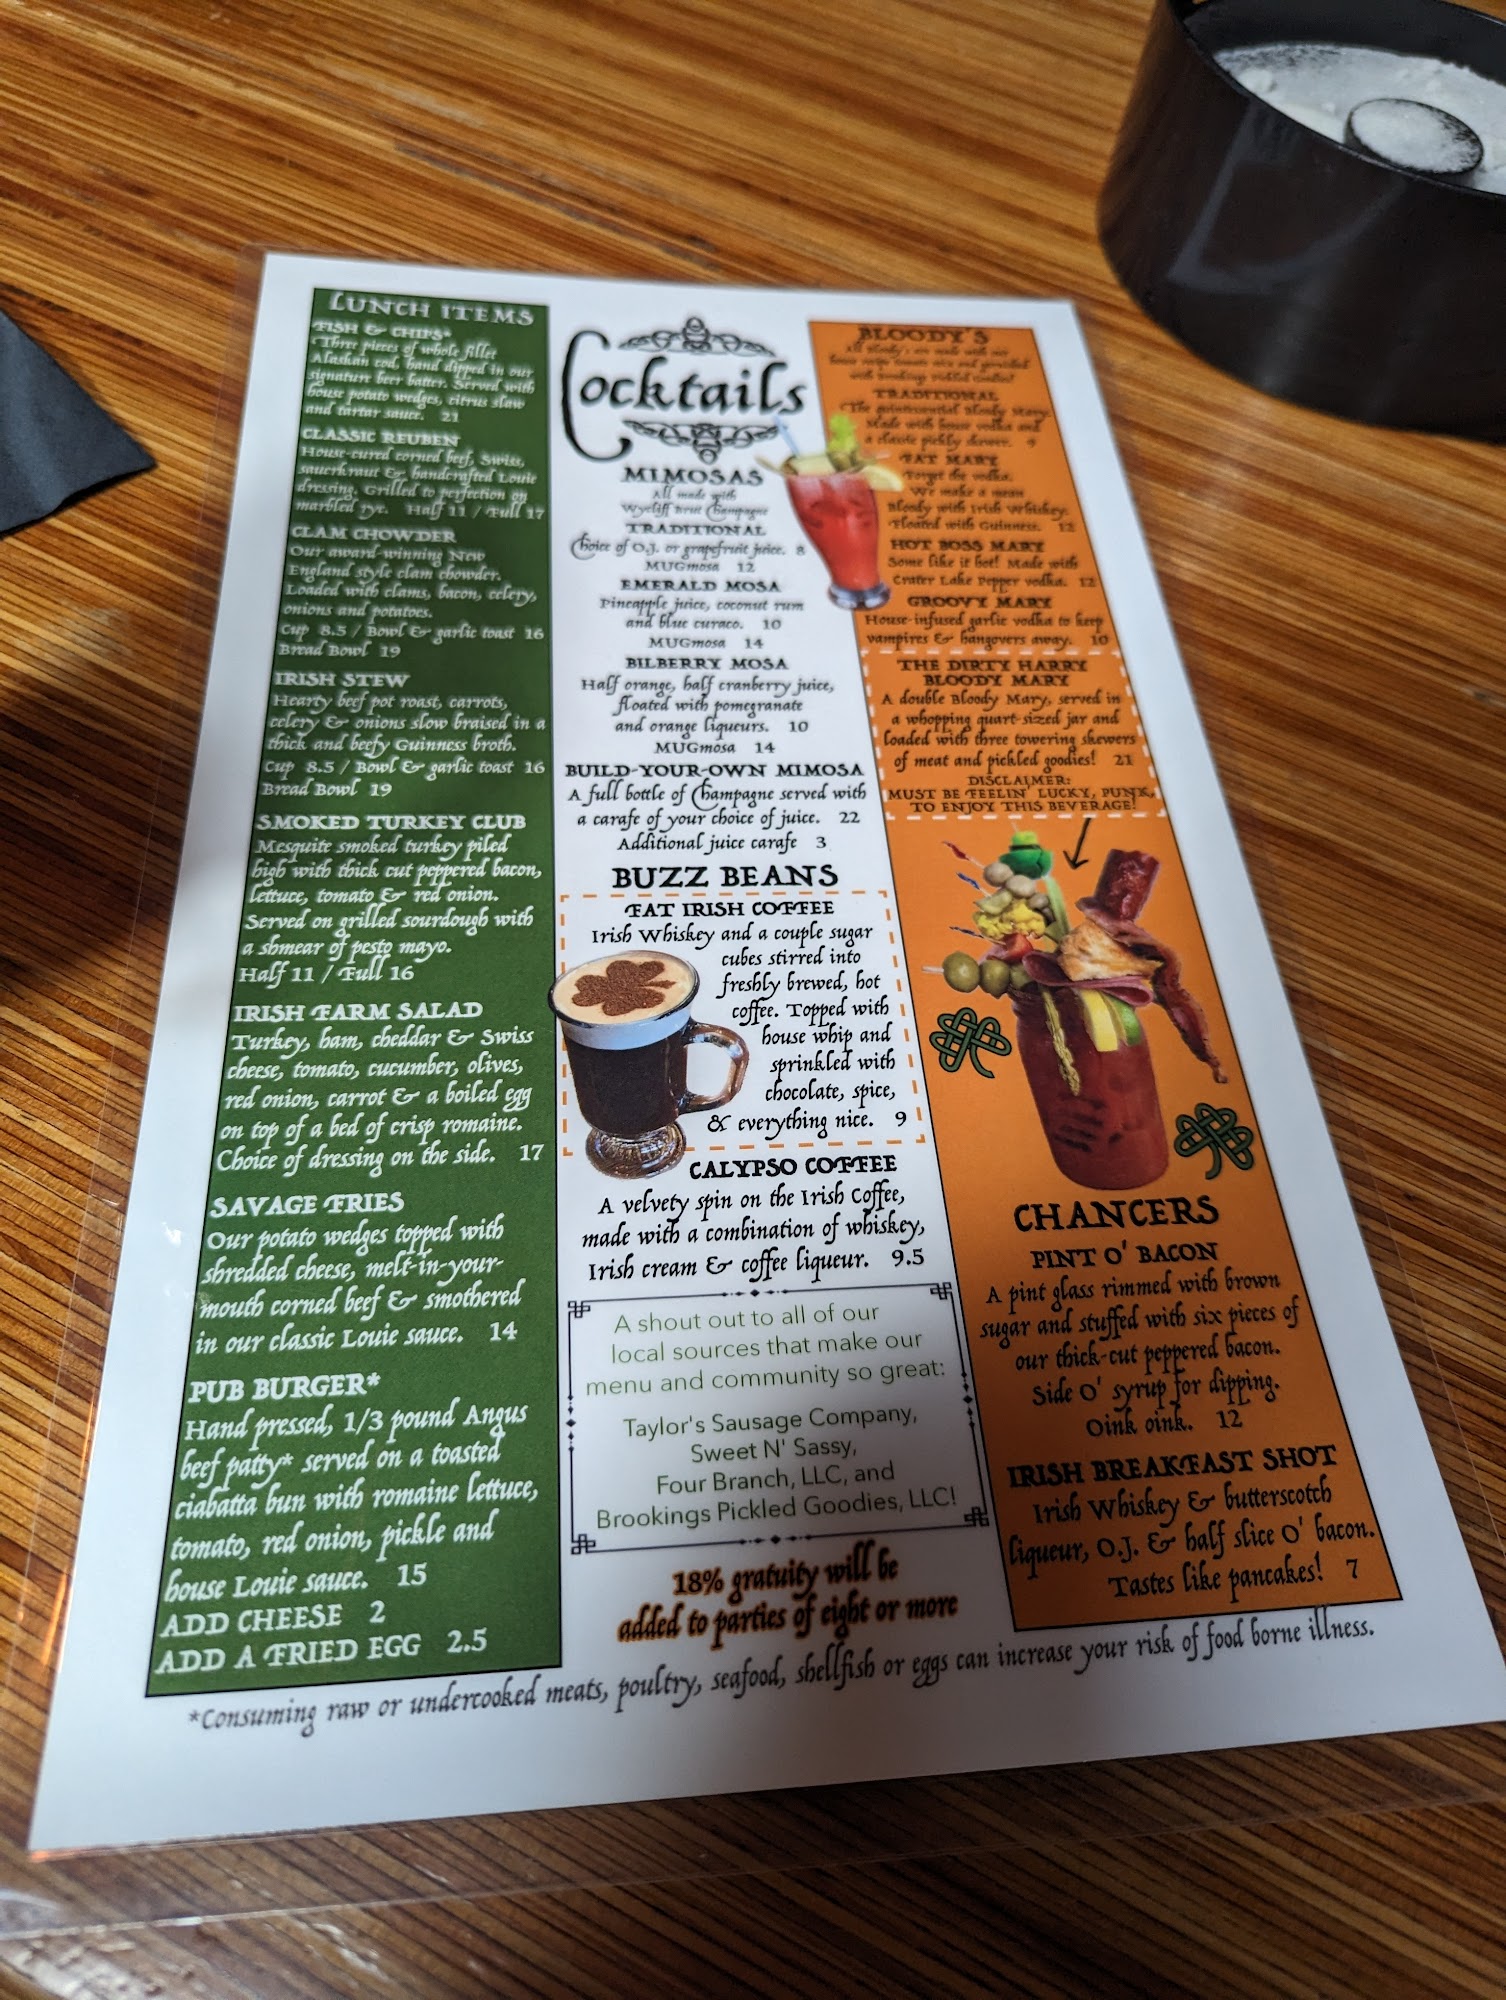 LUNCH ITEMS
FISH & CHIPS*
Three pieces of whole fillet
Alaskan cod, hand dipped in our
signature beer batter. Served with
house potato wedges, citrus slaw
and tartar sauce. 21
CLASSIC REUBEN
House-cured corned beef, Swiss,
sauerkraut & handcrafted Louie
dressing. Grilled to perfection on
marbled rye. Half 11 / Full 17
CLAM CHOWDER
Our award-winning New
England style clam chowder.
Loaded with clams, bacon, celery,
onions and potatoes.
Cup 8.5 / Bowl & garlic toast 16
Bread Bowl 19
IRISH STEW
Hearty beef pot roast, carrots,
celery & onions slow braised in a
thick and beefy Guinness broth.
Cup 8.5 / Bowl & garlic toast 16
Bread Bowl 19
SMOKED TURKEY CLUB
Mesquite smoked turkey piled
high with thick cut peppered bacon,
lettuce, tomato & red onion.
Served on grilled sourdough with
a shmear of pesto mayo.
Half 11 / Full 16
IRISH FARM SALAD
Turkey, ham, cheddar & Swiss
cheese, tomato, cucumber, olives,
red onion, carrot & a boiled egg
on top of a bed of crisp romaine.
Choice of dressing on the side. 17
SAVAGE FRIES
Our potato wedges topped with
shredded cheese, melt-in-your-
mouth corned beef & smothered
in our classic Louie sauce. 14
PUB BURGER*
Hand pressed, 1/3 pound Angus
beef patty* served on a toasted
ciabatta bun with romaine lettuce,
tomato, red onion, pickle and
house Louie sauce. 15
ADD CHEESE 2
ADD A FRIED EGG 2.5
Cocktails
MIMOSAS
All made with
Wycliff Brut Champagne
TRADITIONAL
Choice of O.J. or grapefruit juice. 8
MUGmosa 12
EMERALD MOSA
Pineapple juice, coconut rum
and blue curaco. 10
MUGmosa 14
BILBERRY MOSA
Half orange, half cranberry juice,
floated with pomegranate
and orange liqueurs. 10
MUGmosa 14
BUILD-YOUR-OWN MIMOSA
A full bottle of Champagne served with
a carafe of your choice of juice. 22
Additional juice carafe 3
BUZZ BEANS
FAT IRISH COFFEE
Irish Whiskey and a couple sugar
cubes stirred into
freshly brewed, hot
coffee. Topped with
house whip and
sprinkled with
chocolate, spice,
& everything nice. 9
CALYPSO COFFEE
A velvety spin on the Irish Coffee,
made with a combination of whiskey,
Irish cream & coffee liqueur. 9.5
A shout out to all of our
local sources that make our
menu and community so great:
Taylor's Sausage Company,
Sweet N' Sassy,
Four Branch, LLC, and
Brookings Pickled Goodies, LLC!
18% gratuity will be
added to parties of eight or more
BLOODY'S
All Bloody's are made with our
house recipe tomato mix and garnished
with Brookings Pickled Goodies!
TRADITIONAL
The quintessential Bloody Mary.
Made with house vodka and
a classic pickly skewer. 9
FAT MARY
Forget the vodka.
We make a mean
Bloody with Irish Whiskey.
Floated with Guinness. 12
HOT BOSS MARY
Some like it hot! Made with
Crater Lake Pepper vodka. 12
GROOVY MARY
House-infused garlic vodka to keep
vampires & hangovers away. 10
THE DIRTY HARRY
BLOODY MARY
A double Bloody Mary, served in
a whopping quart-sized jar and
loaded with three towering skewers
of meat and pickled goodies! 21
DISCLAIMER:
MUST BE FEELIN' LUCKY, PUNK,
TO ENJOY THIS BEVERAGE!
CHANCERS
PINT O' BACON
A pint glass rimmed with brown
sugar and stuffed with six pieces of
our thick-cut peppered bacon.
Side O' syrup for dipping.
Oink oink. 12
IRISH BREAKFAST SHOT
Irish Whiskey & butterscotch
liqueur, O.J. & half slice O' bacon.
Tastes like pancakes! 7
*Consuming raw or undercooked meats, poultry, seafood, shellfish or eggs can increase your risk of food borne illness.